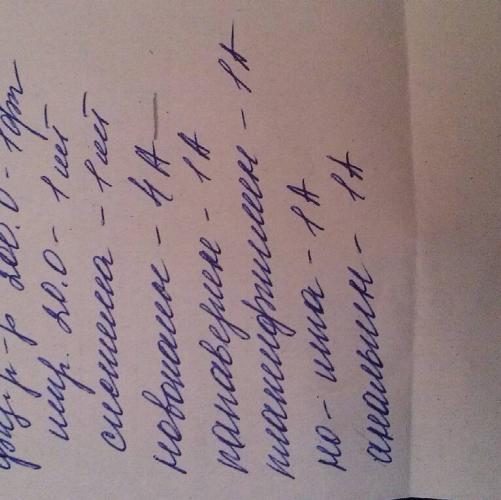 физ. р-р 200.0 - 1 фл
шпр. 20.0 - 1 шт
система - 1 шт
новокаин - 4 А
папаверин - 1 А
платифиллин - 1 А
но-шпа - 1 А
анальгин - 1 А